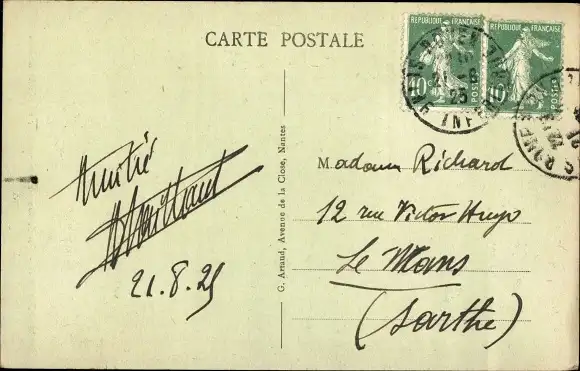 CARTE POSTALE
REPUBLIQUE FRANÇAISE
10c POSTES
REPUBLIQUE FRANÇAISE
10c POSTES
21 - 8
25
INFRE
Amitiés
21.8.25
G. Artaud, Avenue de la Close, Nantes
Madame Richard
12 rue Victor Hugo
Le Mans
(Sarthe)